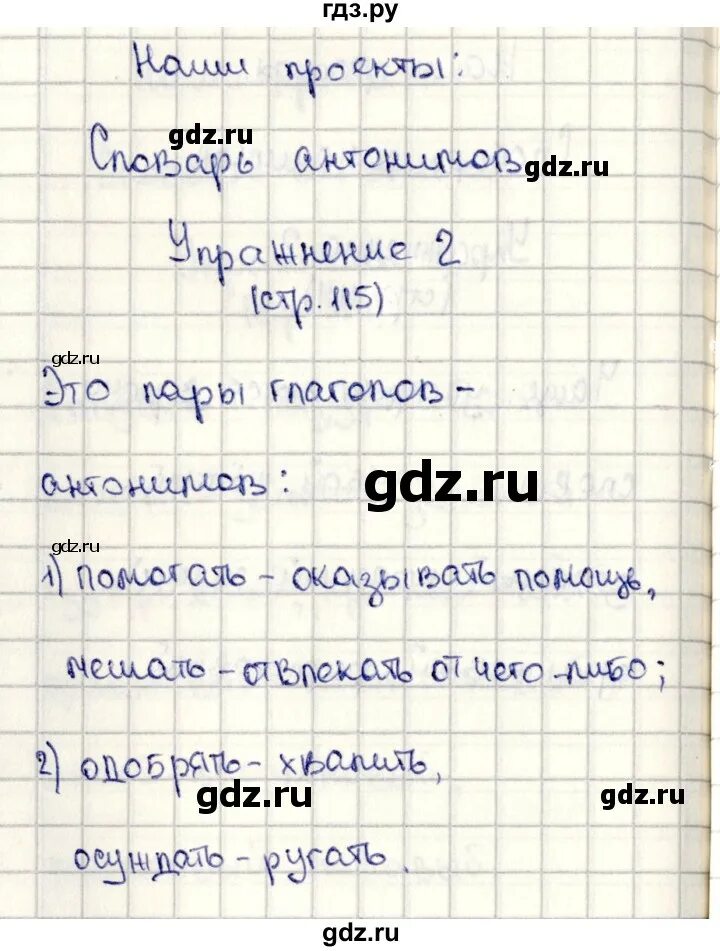 гдз.ру
Наши проекты:
gdz.ru
Словарь антонимов
gdz.ru
Упражнение 2
(стр. 115)
gdz.ru
Это пары глаголов -
антонимов:
gdz.ru
gdz.ru
1) помогать - оказывать помощь,
мешать - отвлекать от чего-либо;
2) одобрять - хвалить,
gdz.ru
gdz.ru
осуждать - ругать.
gdz.ru